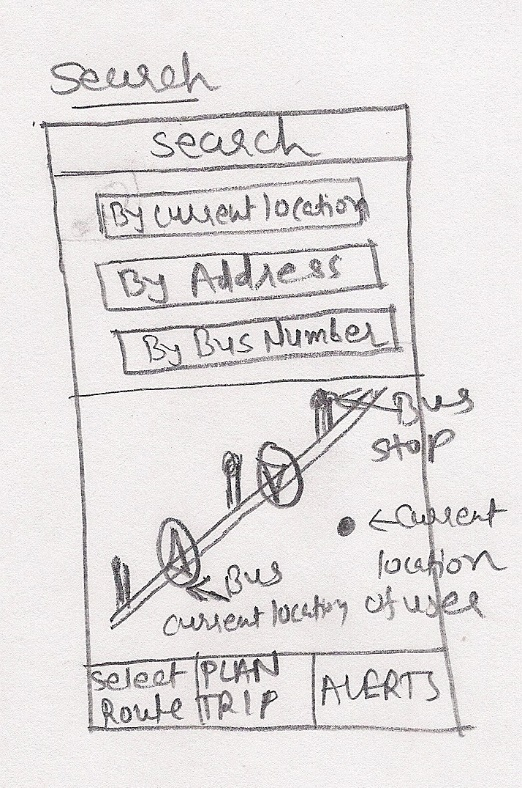 Search
search
By current location
By Address
By Bus Number
Bus
stop
current
location
of user
Bus
current location
select
Route
PLAN
TRIP
ALERTS